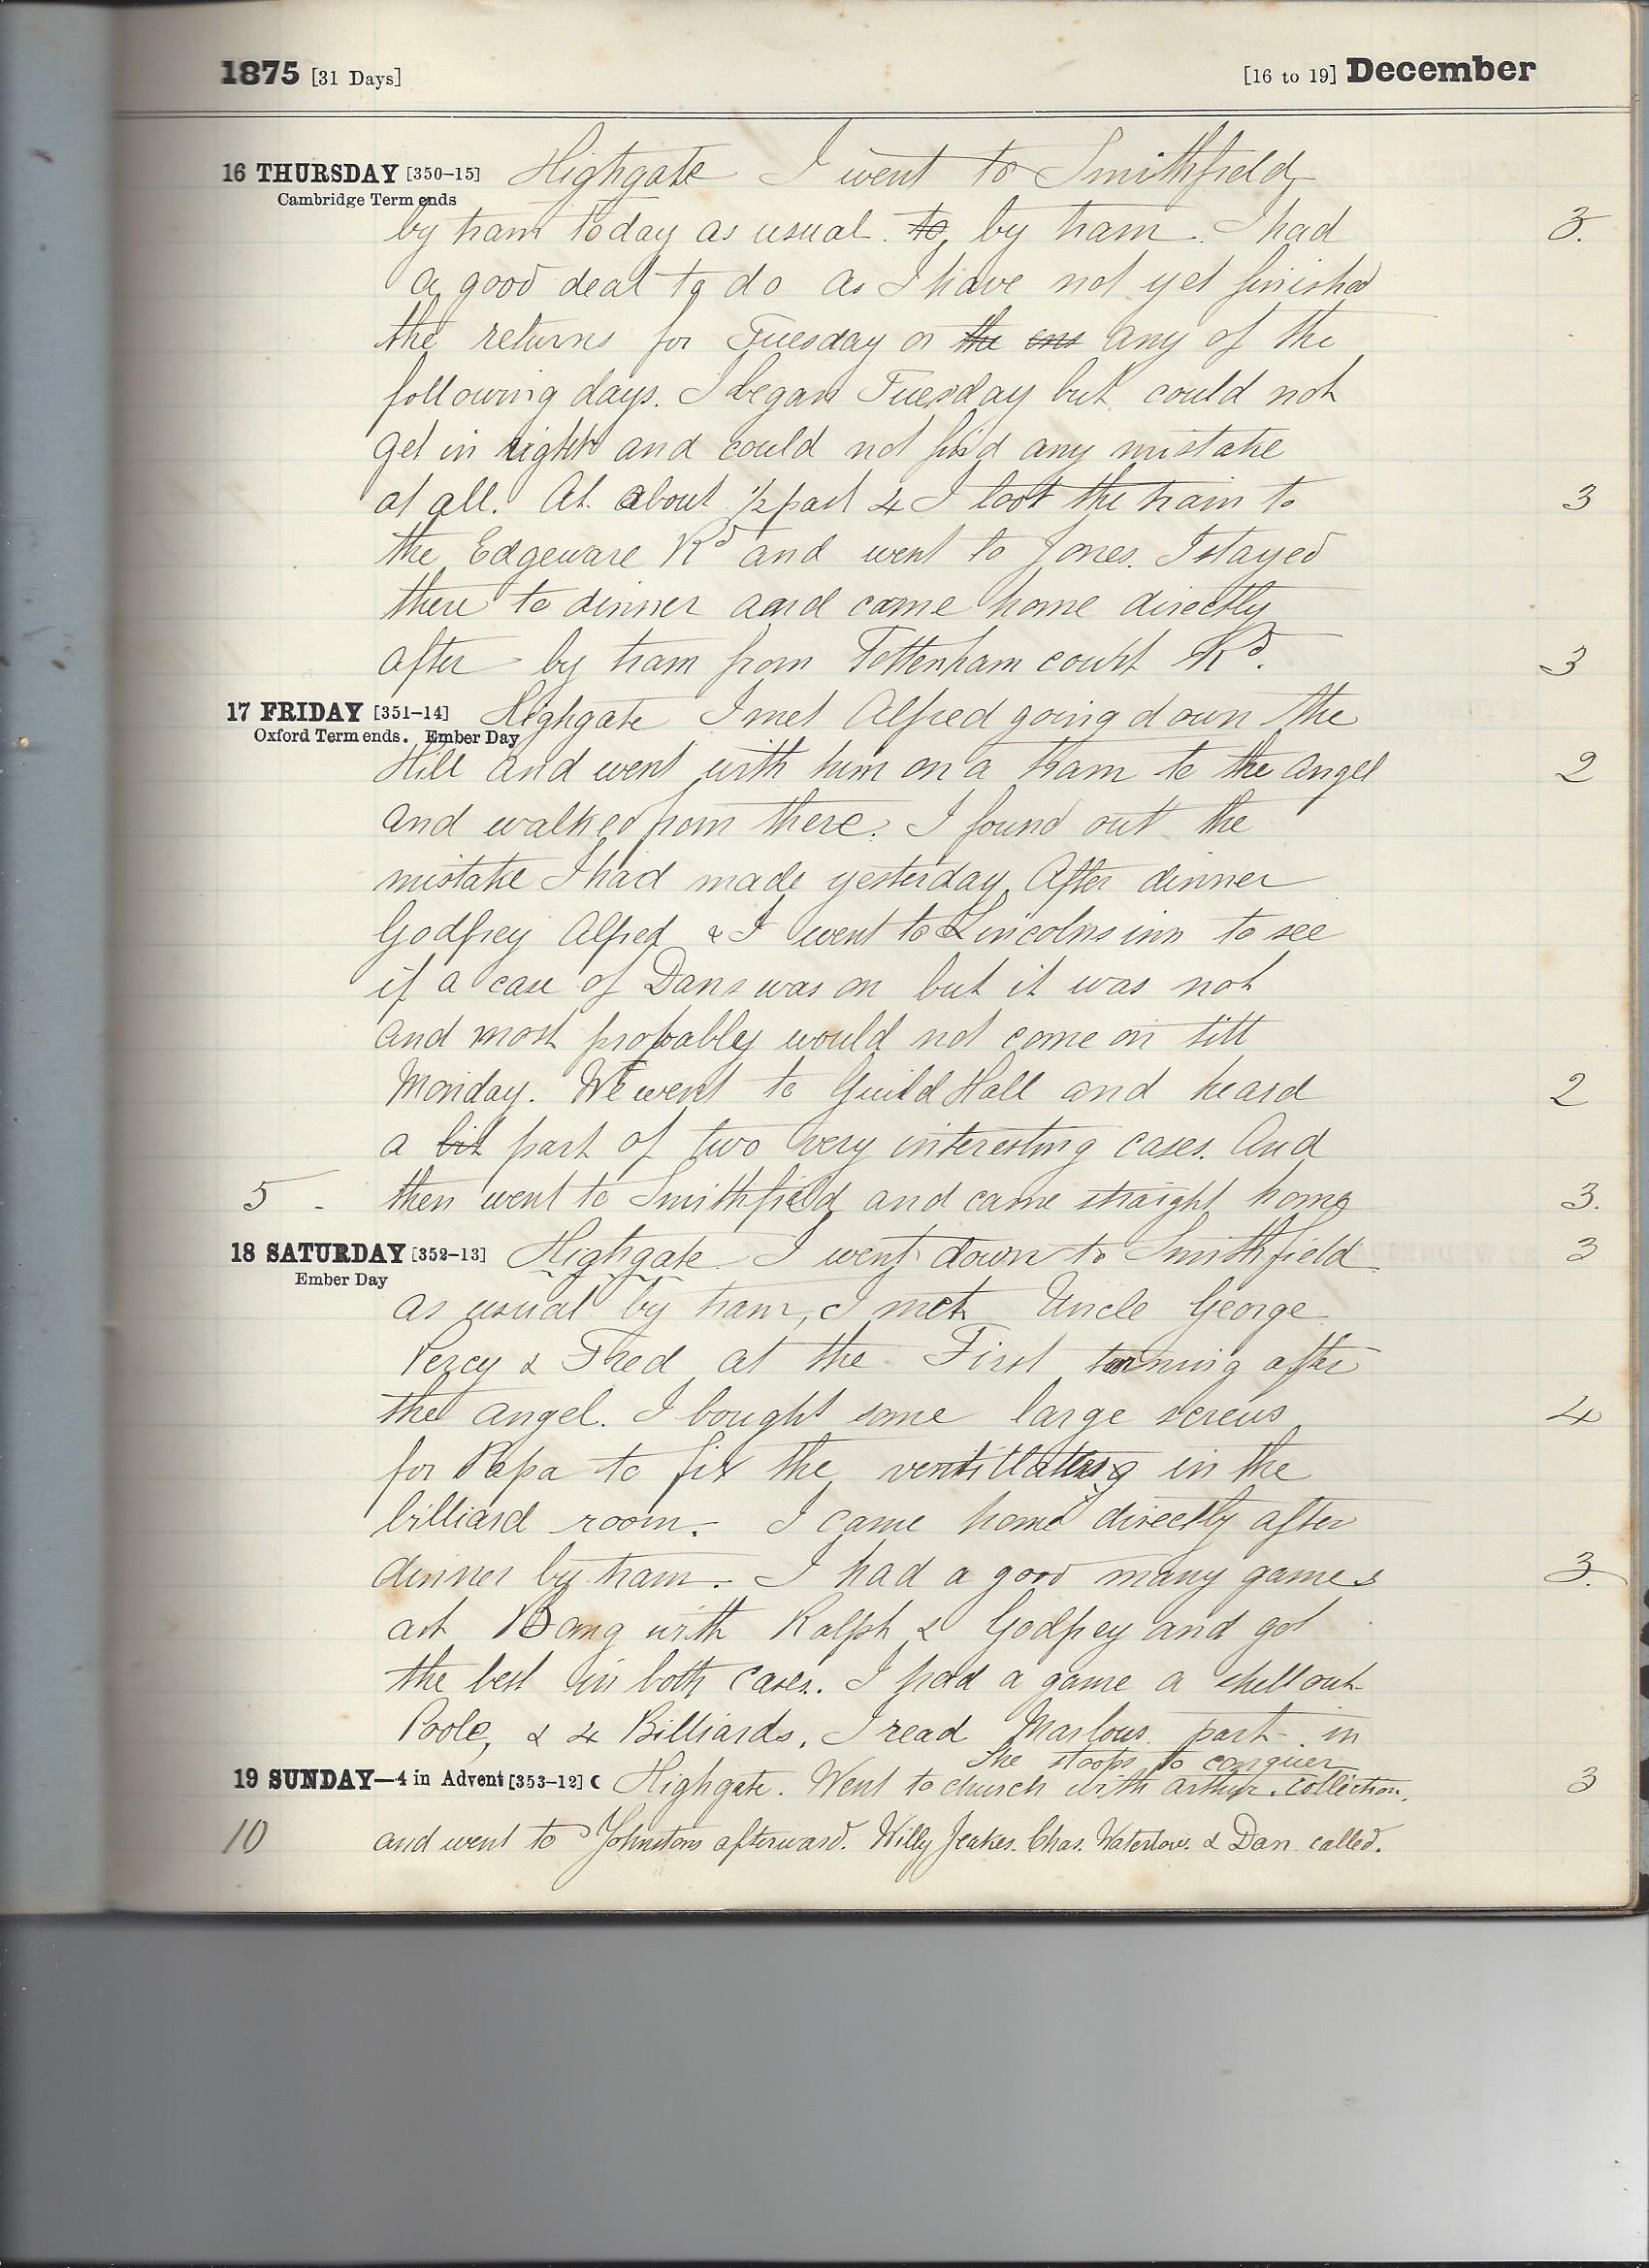 1875 [31 Days] [16 to 19] December
16 THURSDAY [350-15] Highgate I went to Smithfield
Cambridge Term ends
by tram today as usual. to by tram. I had 3.
a good deal to do as I have not yet finished
the returns for Tuesday or the any of the
following days. I began Tuesday but could not
get in right and could not find any mistake
at all. At about ½ past 4 I took the train to 3
the Edgeware Rd and went to Jones. I stayed
there to dinner and came home directly
after by tram from Tottenham court Rd. 3
17 FRIDAY [351-14] Highgate I met Alfred going down the
Oxford Term ends. Ember Day
Hill and went with him on a tram to the Angel 2
and walked from there. I found out the
mistake I had made yesterday. After dinner
Godfrey Alfred & I went to Lincolns inn to see
if a case of Dans was on but it was not
and most probably would not come on till
Monday. We went to Guild Hall and heard 2
a bit part of two very interesting cases. And
5 - then went to Smithfield and came straight home 3.
18 SATURDAY [352-13] Highgate I went down to Smithfield 3
Ember Day
as usual by tram, I met Uncle George
Percy & Fred at the First turning after
the angel. I bought some large screws 4
for Papa to fix the in the
billiard room. I came home directly after
dinner by tram. I had a good many games 3.
at Bang with Ralph & Godfrey and got
the best in both cases. I had a game a shell out
Poole, & 4 Billiards. I read Marlows part in
She stoops to conquer
19 SUNDAY—4 in Advent [353-12] ☾ Highgate. Went to church with Arthur. collection, 3
10 and went to Johnstons afterward. Willy Jeakes. Chas. Waterlow. & Dan called.